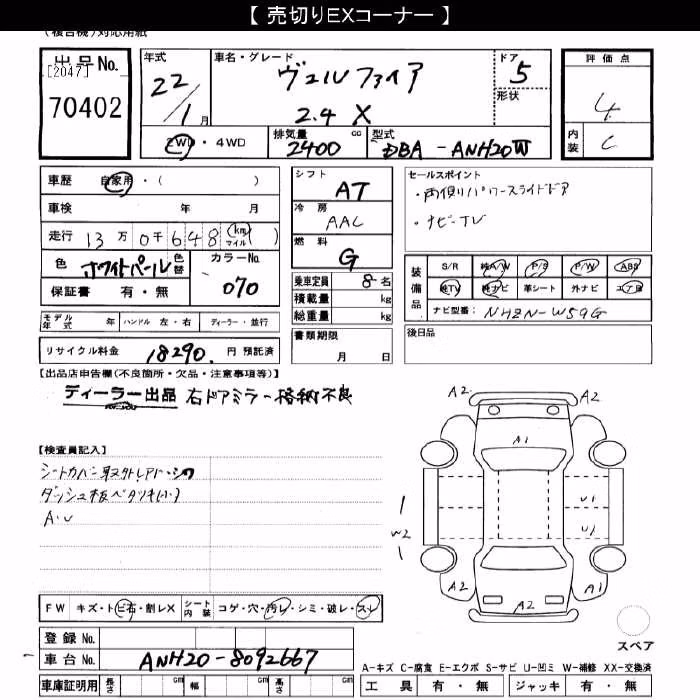 【 売切りEXコーナー 】
(複合機)対応用紙
出品No.
[2047]
70402
年式
22/1月
車名・グレード
ヴェルファイア
2.4 X
ドア
5
形状
評価点
4
内装
C
2WD・4WD
排気量 cc
2400
型式
DBA-ANH20W
車歴 自家用・( )
車検 年 月
走行 13万0千648 (km マイル)
色 ホワイトパール 色替
カラーNo.
070
保証書 有・無
シフト
AT
冷房
AAC
燃料
G
乗車定員 8名
積載量 kg
総重量 kg
セールスポイント
・両側パワースライドドア
・ナビ・TV
装備品
S/R 純A/W P/S P/W ABS
純TV 純ナビ 革シート 外ナビ エアB
ナビ型番: NHZN-W59G
モデル年式 年 ハンドル 左・右 ディーラー・並行
書類期限
月 日
後日品
リサイクル料金 18290 円 預託済
【出品店申告欄(不良箇所・欠品・注意事項等)】
ディーラー出品 右ドアミラー格納不良
【検査員記入】
ダッシュ板ベタツキ(小)
A・U
A2 A2
A1
U1
U1
W2
A2 A1
A2 A2
スペア
FW キズ・トビ石・割レX シート内装 コゲ・穴・汚レ・シミ・破レ・スレ
登録No.
車台No. ANH20-8092667
車庫証明用 長さ cm 幅 cm 高さ cm
A-キズ C-腐食 E-エクボ S-サビ U-凹ミ W-補修 XX-交換済
工具 有・無 ジャッキ 有・無